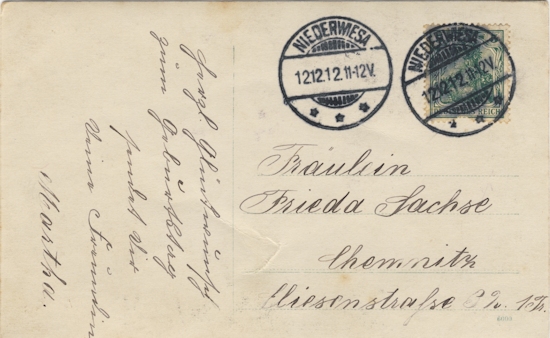 Herzl. Glückwunsch
zum Geburtstag
sendet Dir
Deine Freundin
Martha.
NIEDERWIESA
12.12.12.11-12V.
NIEDERWIESA
12.12.12.11-12V.
REICH
Fräulein
Frieda Sachse
Chemnitz
Eliesenstraße
6090